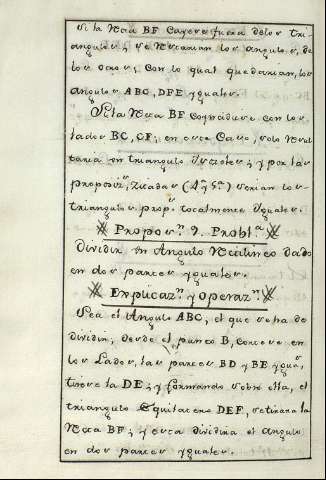 Si la Recta BF Cayere fuera de los tri-
angulos; se restarian los angulos, de
los otros; con lo qual quedarian, los
angulos ABC, DFE yguales.
Si la Recta BF coyncidiere con los
lados BC, CF; en este Caso, solo Resul
taria un triangulo Ysoceles; y por las
proposiz.s Zitadas (4.a y 5.a) serian los
triangulos prop.s totalmente Yguales.
Propos.n 9. Probl.a
Dividir un Angulo Rectilineo dado
en dos partes yguales.
Explicaz.n y Operaz.n
Sea el Angulo ABC, el que se ha de
dividir, desde el punto B, cortese en
los Lados, las partes BD y BE ygua.s,
tirese la DE; y formando sobre ella, el
triangulo Equilatero DEF, se tirara la
Recta BF; y esta dividira el angulo
en dos partes yguales.